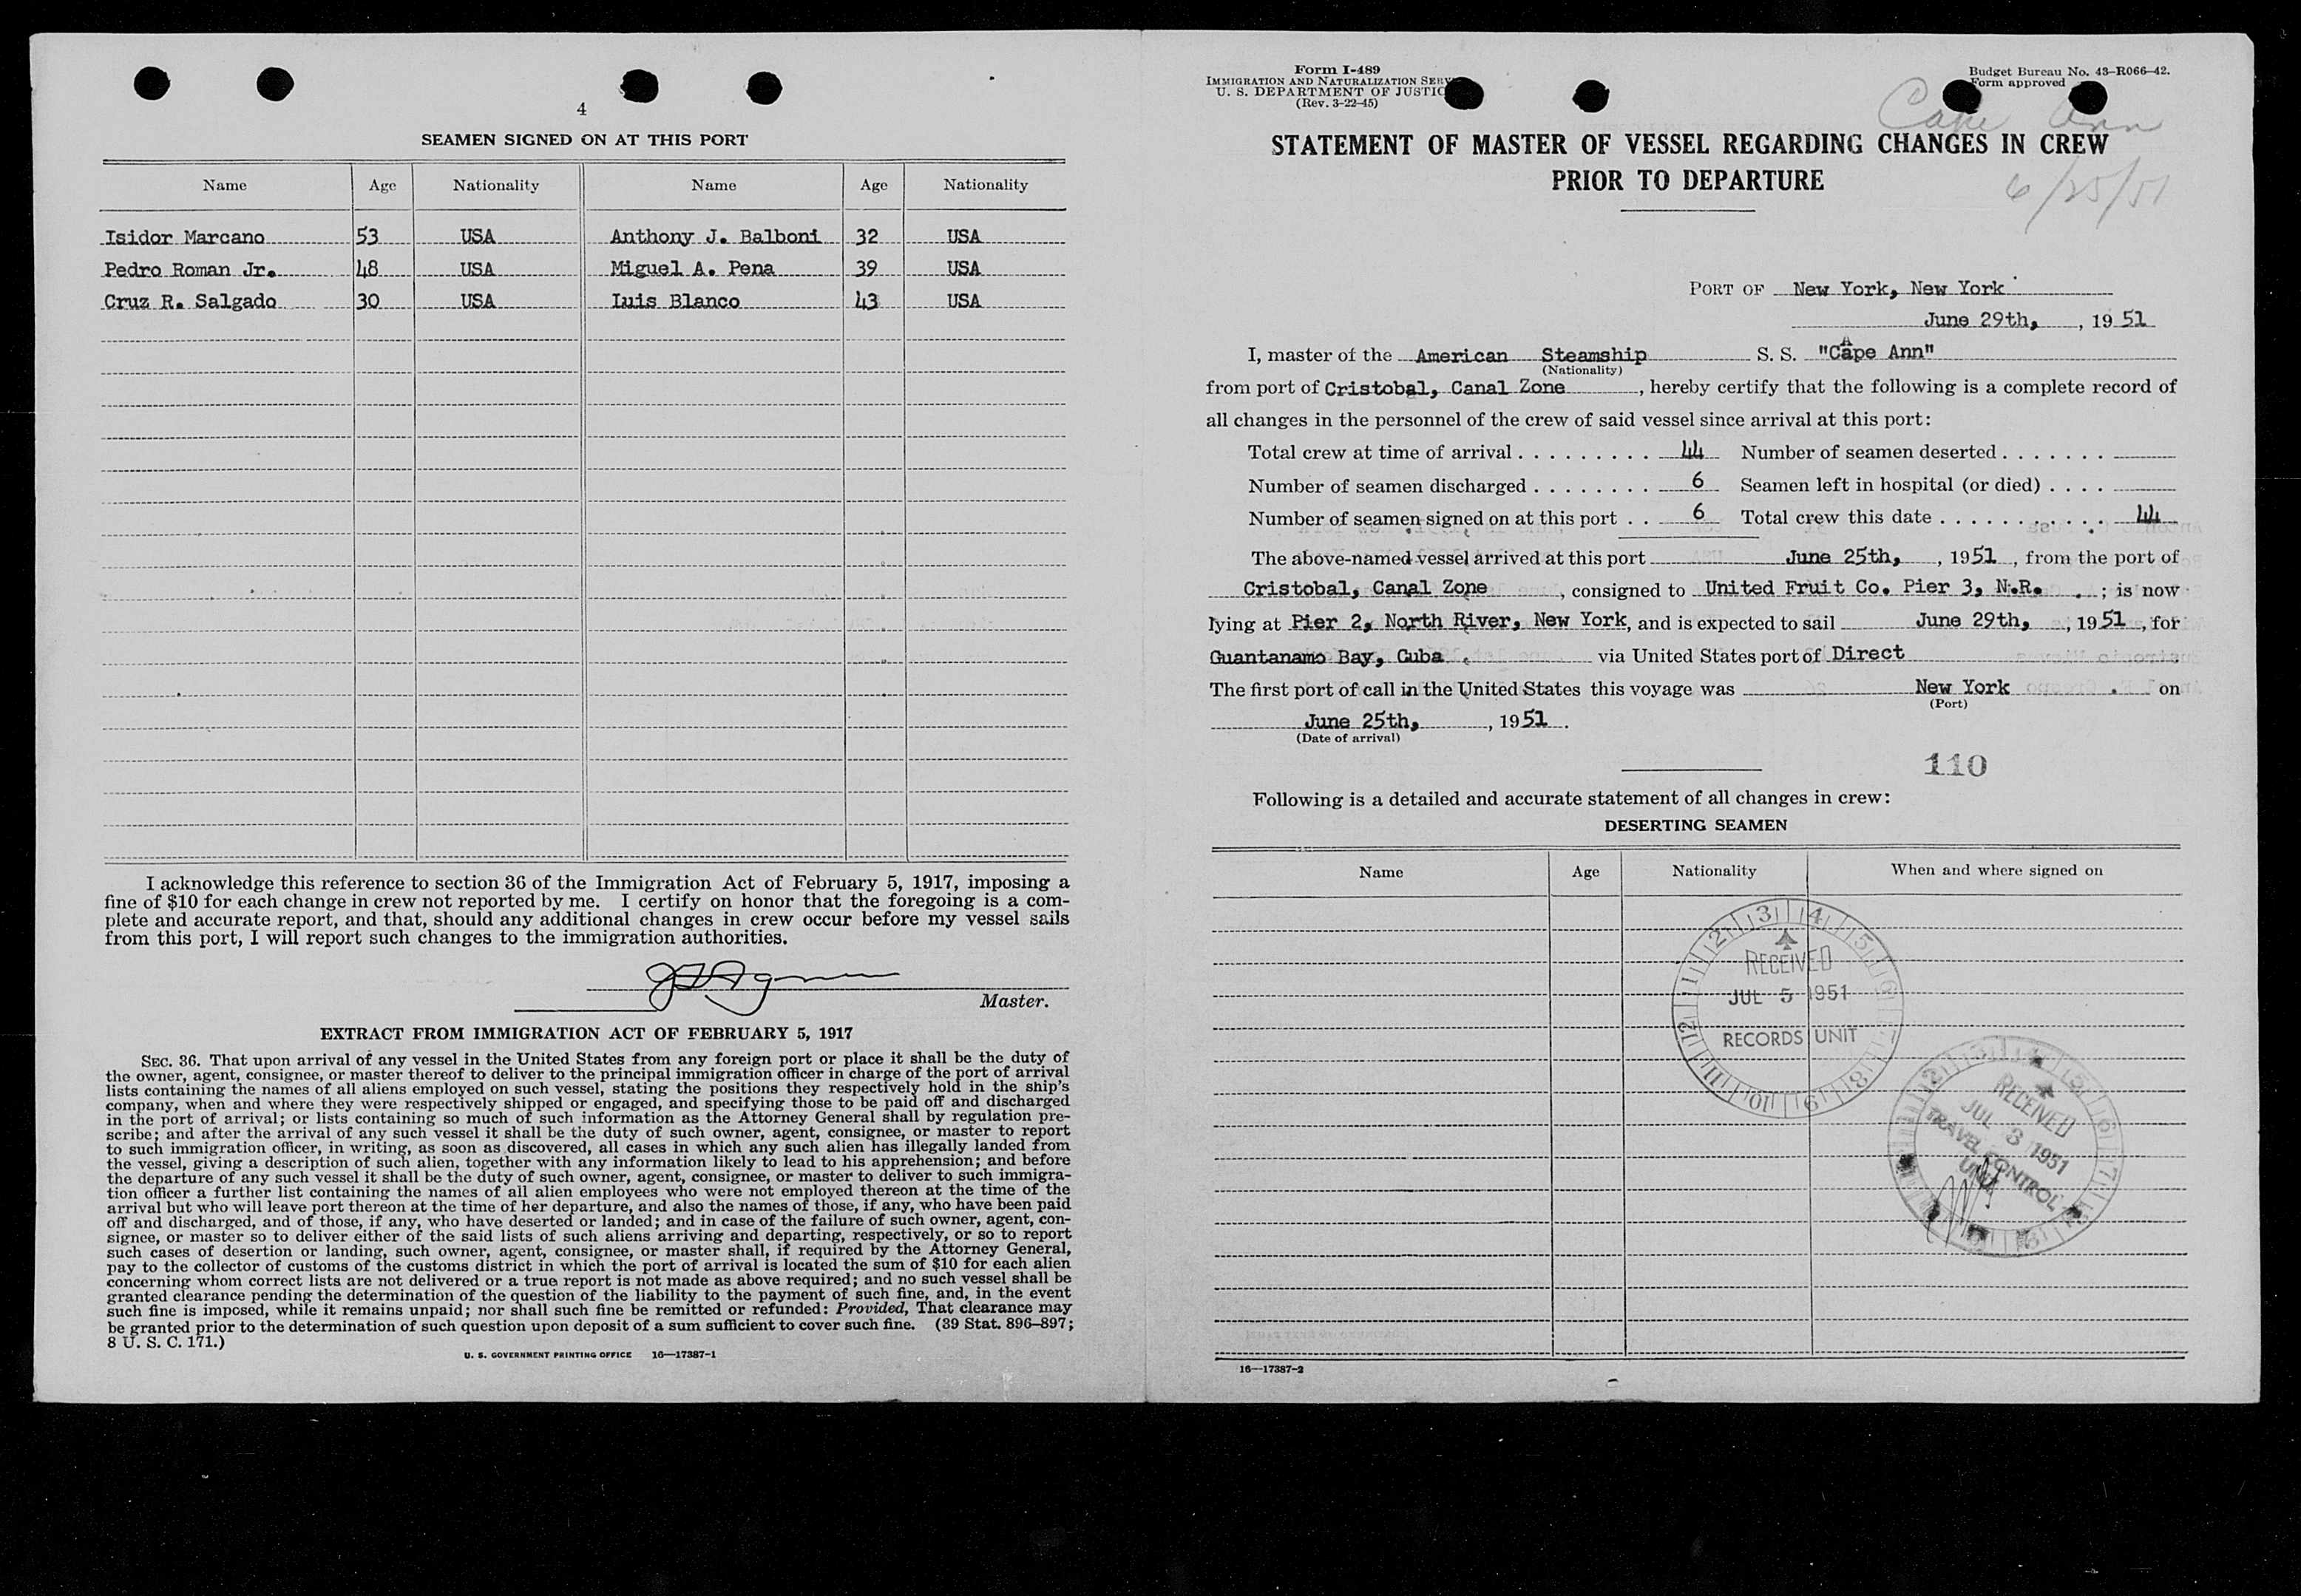 4
SEAMEN SIGNED ON AT THIS PORT
Name Age Nationality Name Age Nationality
Isidor Marcano 53 USA Anthony J. Balboni 32 USA
Pedro Roman Jr. 48 USA Miguel A. Pena 39 USA
Cruz R. Salgado 30 USA Luis Blanco 43 USA
I acknowledge this reference to section 36 of the Immigration Act of February 5, 1917, imposing a
fine of $10 for each change in crew not reported by me. I certify on honor that the foregoing is a com-
plete and accurate report, and that, should any additional changes in crew occur before my vessel sails
from this port, I will report such changes to the immigration authorities.
Master.
EXTRACT FROM IMMIGRATION ACT OF FEBRUARY 5, 1917
SEC. 36. That upon arrival of any vessel in the United States from any foreign port or place it shall be the duty of
the owner, agent, consignee, or master thereof to deliver to the principal immigration officer in charge of the port of arrival
lists containing the names of all aliens employed on such vessel, stating the positions they respectively hold in the ship's
company, when and where they were respectively shipped or engaged, and specifying those to be paid off and discharged
in the port of arrival; or lists containing so much of such information as the Attorney General shall by regulation pre-
scribe; and after the arrival of any such vessel it shall be the duty of such owner, agent, consignee, or master to report
to such immigration officer, in writing, as soon as discovered, all cases in which any such alien has illegally landed from
the vessel, giving a description of such alien, together with any information likely to lead to his apprehension; and before
the departure of any such vessel it shall be the duty of such owner, agent, consignee, or master to deliver to such immigra-
tion officer a further list containing the names of all alien employees who were not employed thereon at the time of the
arrival but who will leave port thereon at the time of her departure, and also the names of those, if any, who have been paid
off and discharged, and of those, if any, who have deserted or landed; and in case of the failure of such owner, agent, con-
signee, or master so to deliver either of the said lists of such aliens arriving and departing, respectively, or so to report
such cases of desertion or landing, such owner, agent, consignee, or master shall, if required by the Attorney General,
pay to the collector of customs of the customs district in which the port of arrival is located the sum of $10 for each alien
concerning whom correct lists are not delivered or a true report is not made as above required; and no such vessel shall be
granted clearance pending the determination of the question of the liability to the payment of such fine, and, in the event
such fine is imposed, while it remains unpaid; nor shall such fine be remitted or refunded: Provided, That clearance may
be granted prior to the determination of such question upon deposit of a sum sufficient to cover such fine. (39 Stat. 896-897;
8 U. S. C. 171.)
U. S. GOVERNMENT PRINTING OFFICE 16—17387-1
Form I-489
IMMIGRATION AND NATURALIZATION SERV
U. S. DEPARTMENT OF JUSTIC
(Rev. 3-22-45)
Budget Bureau No. 43-R066-42.
Form approved
Cape Ann
6/25/51
STATEMENT OF MASTER OF VESSEL REGARDING CHANGES IN CREW
PRIOR TO DEPARTURE
PORT OF New York, New York
June 29th, , 1951
I, master of the American Steamship S. S. "Cape Ann"
(Nationality)
from port of Cristobal, Canal Zone , hereby certify that the following is a complete record of
all changes in the personnel of the crew of said vessel since arrival at this port:
Total crew at time of arrival . . . . . . . . . 44 Number of seamen deserted . . . . . . .
Number of seamen discharged . . . . . . . . 6 Seamen left in hospital (or died) . . . .
Number of seamen signed on at this port . . 6 Total crew this date . . . . . . . . . . . 44
The above-named vessel arrived at this port June 25th, , 1951 , from the port of
Cristobal, Canal Zone , consigned to United Fruit Co. Pier 3, N.R. ; is now
lying at Pier 2, North River, New York, and is expected to sail June 29th, , 1951 , for
Guantanamo Bay, Cuba via United States port of Direct
The first port of call in the United States this voyage was New York on
(Port)
June 25th, , 1951 .
(Date of arrival)
110
Following is a detailed and accurate statement of all changes in crew:
DESERTING SEAMEN
Name Age Nationality When and where signed on
1 2 3 4 5 6 7 8 9 10 11 12
RECEIVED
JUL 5 1951
RECORDS UNIT
RECEIVED
JUL 3 1951
TRAVEL CONTROL
UNIT
16—17387-2